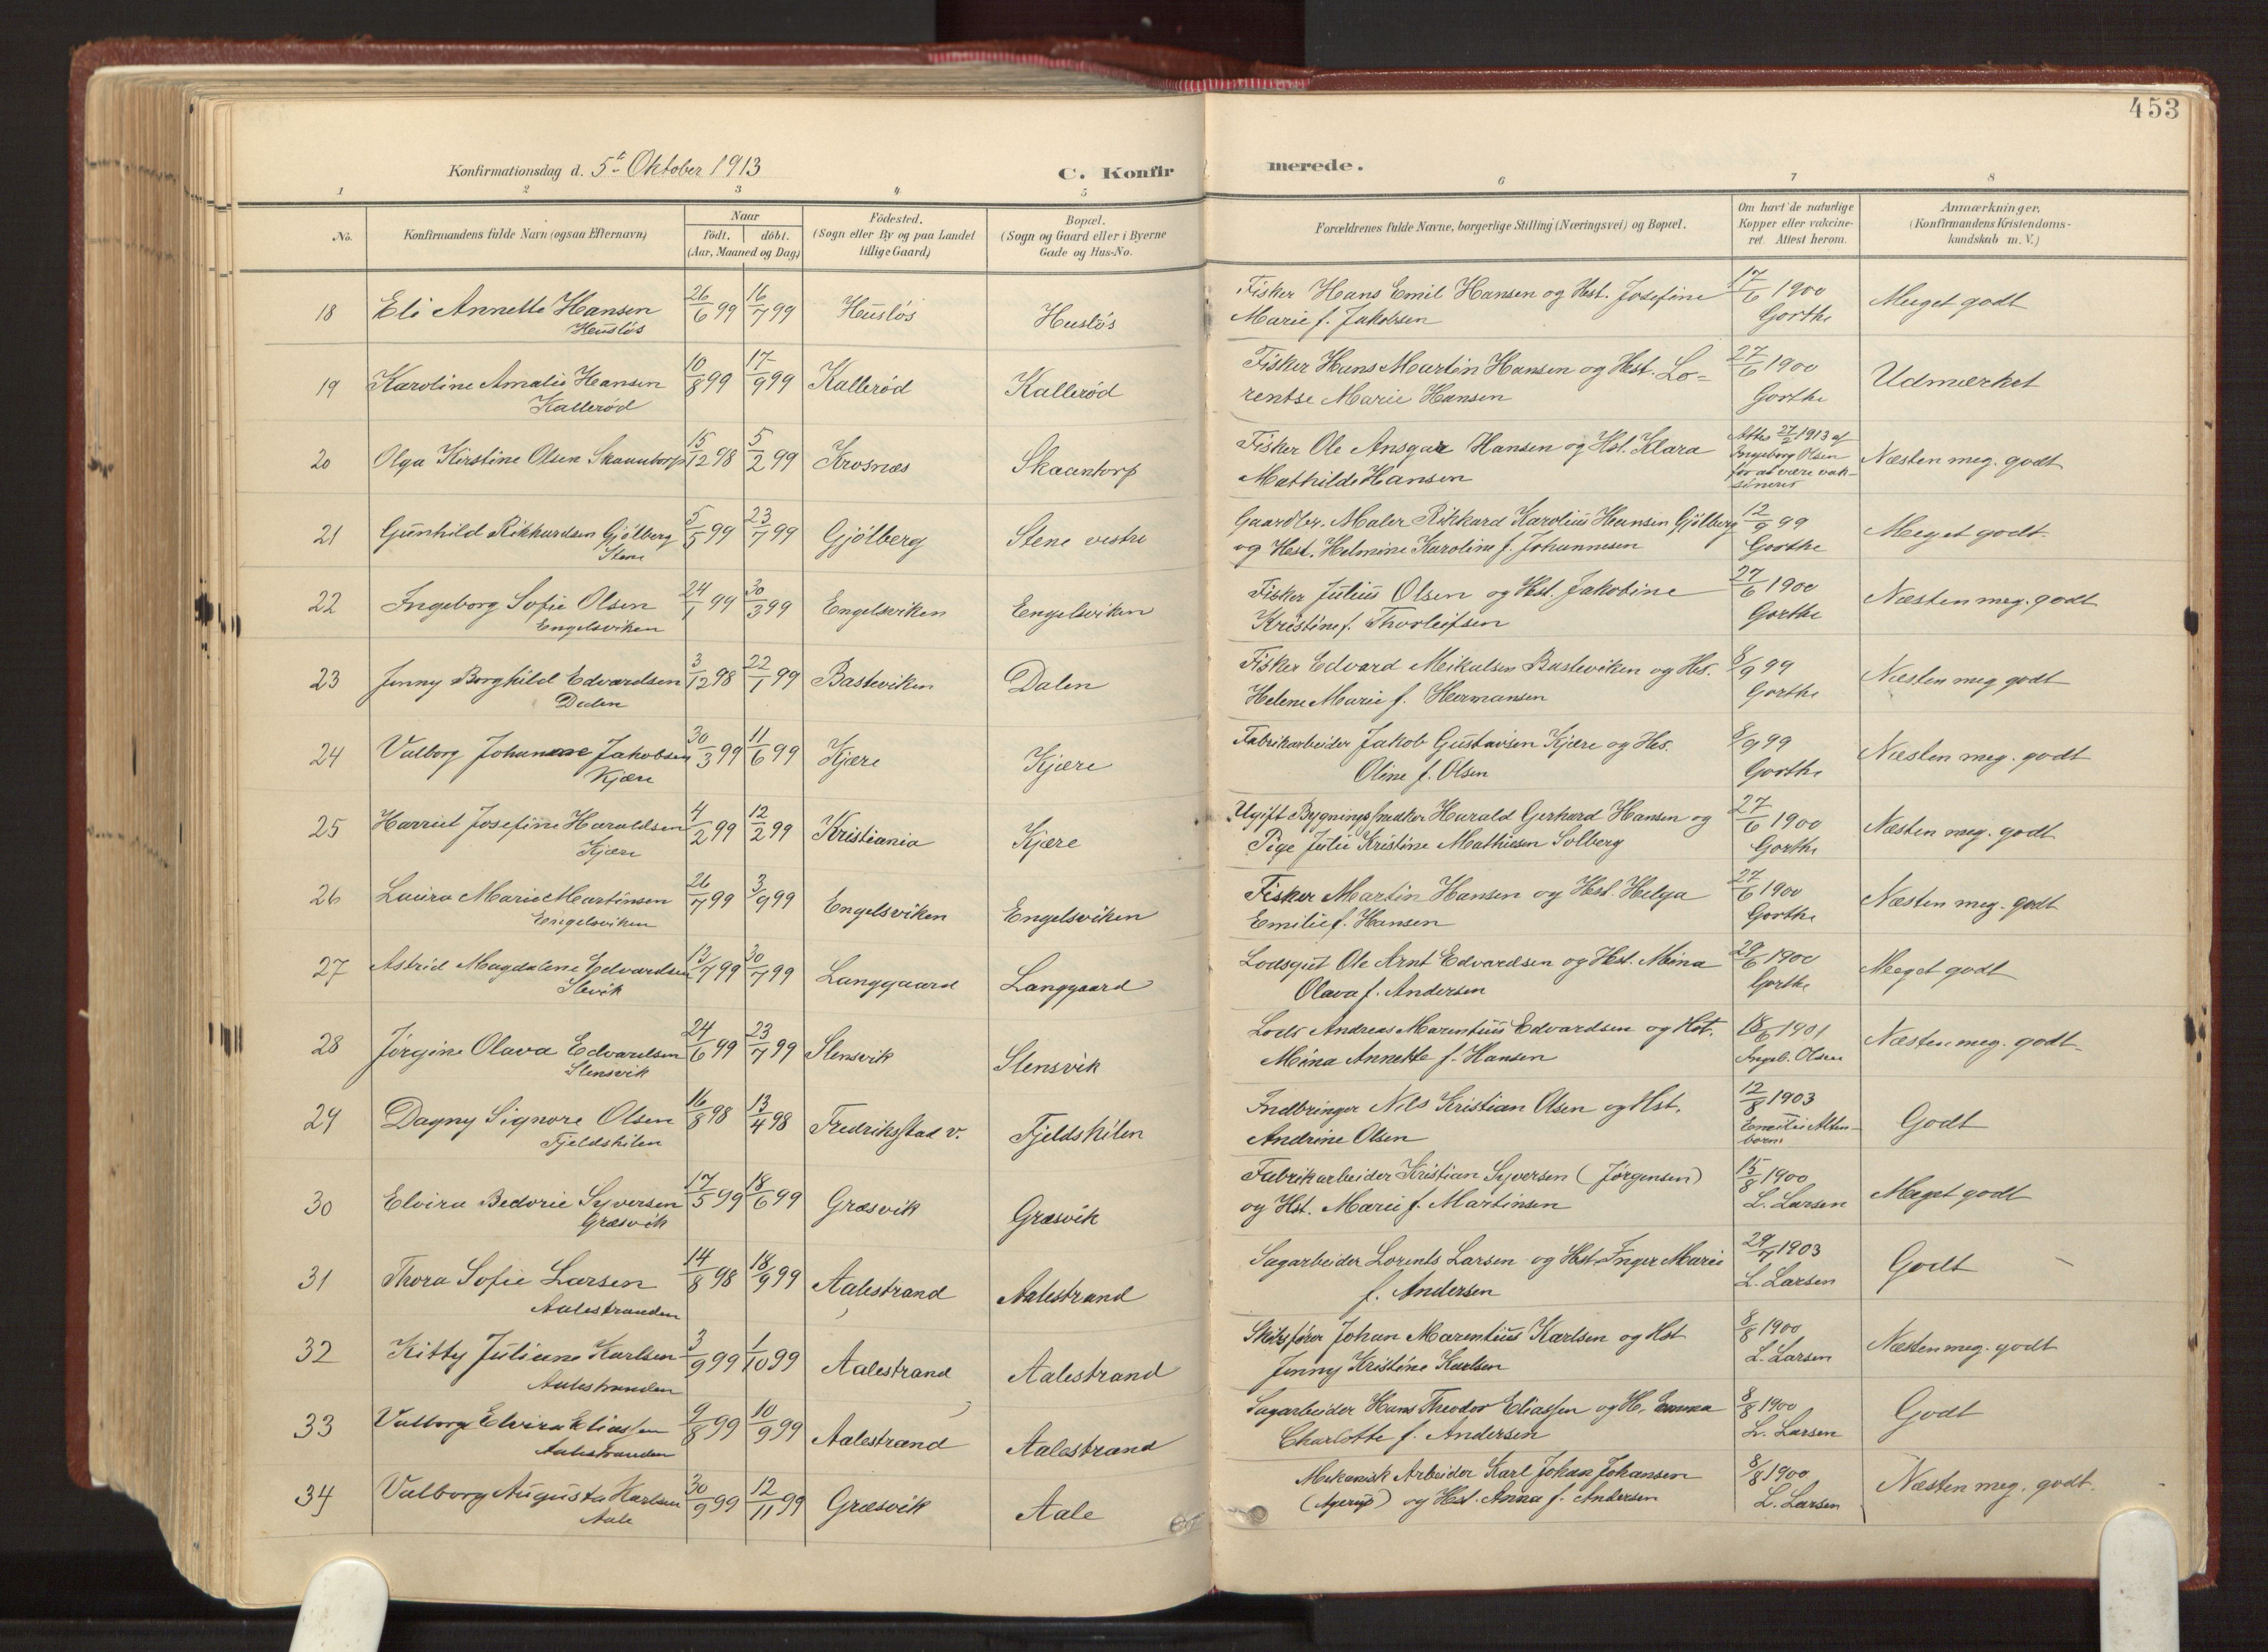 453
Konfirmationsdag d. 5te Oktober 1913
C. Konfirmerede.
1 2 3 4 5 6 7 8
No. | Konfirmandens fulde Navn (ogsaa Efternavn) | Naar födt. | döbt. (Aar, Maaned og Dag) | Födested. (Sogn eller By og paa Landet tillige Gaard) | Bopæl. (Sogn og Gaard eller i Byerne Gade og Hus-No. | Forældrenes fulde Navne, borgerlige Stilling (Næringsvei) og Bopæl. | Om havt de naturlige Kopper eller vakcineret. Attest herom. | Anmærkninger. (Konfirmandens Kristendomskundskab m. V.)
18 Eli Annette Hansen 26/6 99 16/7 99 Husløs Husløs Fisker Hans Emil Hansen og Hst. Josefine 17/6 1900 Meget godt
Husløs Marie f. Jakobsen Gorthe
19 Karoline Amalie Hansen 10/8 99 17/9 99 Kallerød Kallerød Fisker Hans Martin Hansen og Hst. Lo- 27/6 1900 Udmærket
Kallerød rentse Marie Hansen Gorthe
20 Olga Kirstine Olsen Skaantorp 15/12 98 5/2 99 Krosnæs Skaantorp Fisker Ole Ansgar Hansen og Hst. Klara Attes 27/2 1913 af Næsten meg. godt
Mathilde Hansen Ingeborg Olsen
for at være vak-
sineret
21 Gunhild Rikhardsen Gjølberg 5/5 99 23/7 99 Gjølberg Stene vestre Gaardbr. Maler Rikkard Karolius Hansen Gjølberg 12/9 99 Meget godt.
Stene og Hst. Helmine Karoline f. Johannesen Gorthe
22 Ingeborg Sofie Olsen 24/1 99 30/3 99 Engelsviken Engelsviken Fisker Julius Olsen og Hst. Jakobine 27/6 1900 Næsten meg. godt
Engelsviken Kristine f. Thorleifsen Gorthe
23 Jenny Borghild Edvardsen 3/12 98 22/1 99 Basteviken Dalen Fisker Edvard Mikalsen Basteviken og Hs. 8/9 99 Næsten meg godt
Dalen Helene Marie f. Hermansen Gorthe
24 Valborg Johanne Jakobsen 30/3 99 11/6 99 Kjære Kjære Fabrikarbeider Jakob Gustavsen Kjære og Hs. 8/9 99 Næsten meg. godt
Kjære Oline f. Olsen Gorthe
25 Harriet Josefine Haraldsen 4/2 99 12/2 99 Kristiania Kjære Ugift Bygningssnedker Harald Gerhard Hansen og 27/6 1900 Næsten meg. godt
Kjære Pige Julie Kristine Mathiesen Solberg Gorthe
26 Laura Marie Martinsen 26/7 99 3/9 99 Engelsviken Engelsviken Fisker Martin Hansen og Hst. Helga 27/6 1900 Næsten meg. godt
Engelsviken Emilie f. Hansen Gorthe
27 Astrid Magdalene Edvardsen 13/7 99 30/7 99 Langgaard Langgaard Lodsgut Ole Arnt Edvardsen og Hst. Mina 29/6 1900 Meget godt
Slevik Olava f. Andersen Gorthe
28 Jørgine Olava Edvardsen 24/6 99 23/7 99 Slensvik Slensvik Lods Andreas Marentius Edvardsen og Hst. 18/6 1901 Næsten meg. godt
Slensvik Mina Annette f. Hansen Ingeb. Olsen
29 Dagny Signore Olsen 16/8 98 13/4 98 Fredriksstad v. Fjeldskilen Indbringer Nils Kristian Olsen og Hst. 12/8 1903 Godt
Fjeldskilen Andrine Olsen Emilie Alten-
born
30 Elvira Bedorie Syversen 17/5 99 18/6 99 Græsvik Græsvik Fabrikarbeider Kristian Syversen (Jørgensen) 15/8 1900 Meget godt
Græsvik og Hst. Marie f. Martinsen L. Larsen
31 Thora Sofie Larsen 14/8 98 18/9 99 Aalestrand Aalestrand Sagarbeider Lorents Larsen og Hst. Inger Marie 29/7 1903 Godt
Aalestranden f. Andersen L. Larsen
32 Kitty Juliane Karlsen 3/9 99 1/10 99 Aalestrand Aalestrand Skibsfører Johan Marentius Karlsen og Hst 8/8 1900 Næsten meg. godt
Aalestranden Jenny Kristine Karlsen L. Larsen
33 Valborg Elvira Eliassen 9/8 99 10/9 99 Aalestrand Aalestrand Sagarbeider Hans Theodor Eliassen og H. Emma 8/8 1900 Godt
Aalestranden Charlotte f. Andersen L. Larsen
34 Valborg Augusta Karlsen 30/9 99 12/11 99 Græsvik Aale Mekanisk Arbeider Karl Johan Johansen 8/8 1900 Næsten meg. godt.
Aale (Agerup) og Hst. Anna f. Andersen L. Larsen